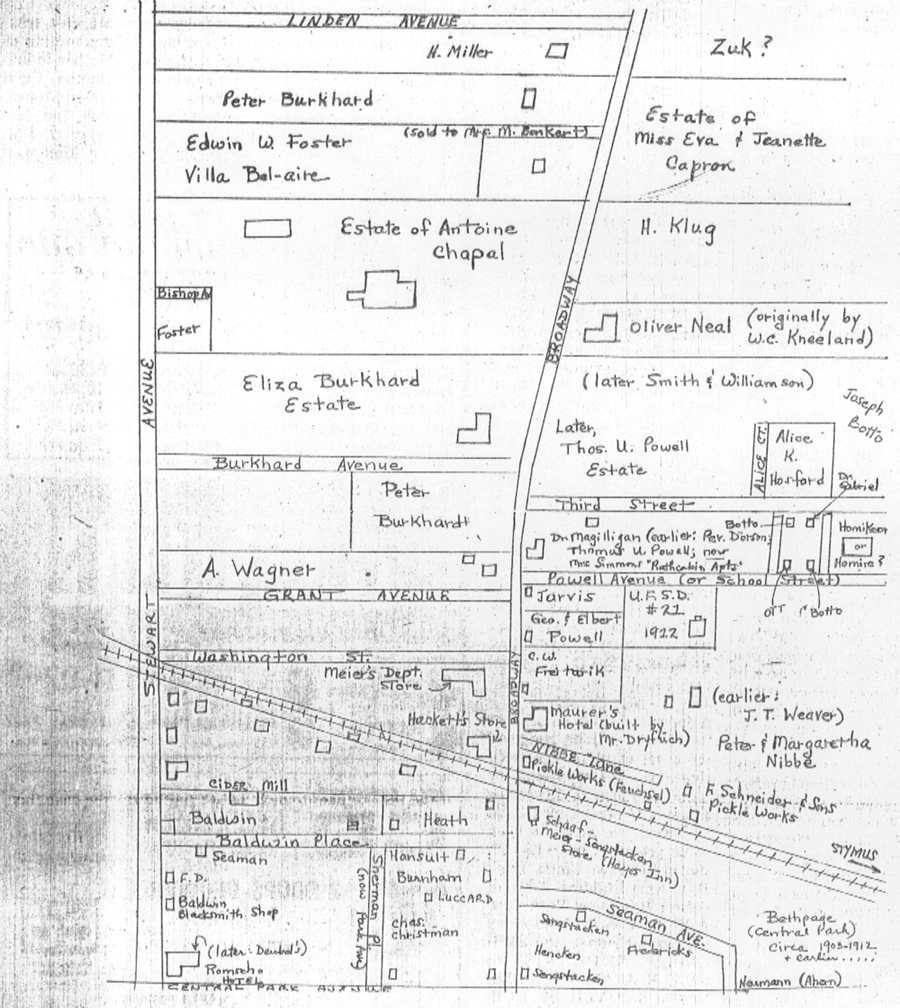 LINDEN AVENUE
H. Miller
Zuk ?
Peter Burkhard
Estate of
Miss Eva & Jeanette
Capron
(sold to Mrs. M. Benkert)
Edwin W. Foster
Villa Bel-aire
Estate of Antoine
Chapal
H. Klug
Bishop
Foster
BROADWAY
Oliver Neal (originally by
W.C. Kneeland)
AVENUE
Eliza Burkhard
Estate
(later Smith & Williamson)
Joseph
Botto
Later,
Thos. U. Powell
Estate
ALICE CT.
Alice
K.
Hosford
Dr.
Gabriel
Burkhard Avenue
Peter
Burkhardt
Third Street
Dr. Magilligan (earlier: Rev. Dorson;
Thomas U. Powell; now
Mrs Simmons "Ruthcabin Apts"
Botto
Homikeer
or
Homire?
A. Wagner
GRANT AVENUE
Powell Avenue (or School Street)
OTT
Botto
Jarvis
U.F.S.D.
#21
1922
Geo. & Elbert
Powell
STEWART
Washington St.
BROADWAY
C.W.
Freitarik
Meier's Dept.
Store
Hackett's Store
Maurer's
Hotel (built by
Mr. Dryflich)
(earlier:
J.T. Weaver)
Peter & Margaretha
Nibbe
NIBBE Lane
Pickle Works (Feuchsel)
F. Schneider & Sons
Pickle Works
CIDER MILL
Baldwin
Heath
Schaaf-
Meier-Sengstacken
Store (Hayes Inn)
Baldwin Place
STYMUS
Seaman
Sherman Pl.
(now Park Ave)
Hansult
F.D.
Baldwin
Blacksmith Shop
Burnham
LUCCARD
chas.
christman
Seaman AVE.
Sengstacken
Fredericks
Bethpage
(Central Park)
Circa 1903-1912
+ earlier.....
(later: Deubel's)
Romscho
HOTEL
Hencken
Sengstacken
Naumann (Ahern)
CENTRAL PARK AVENUE